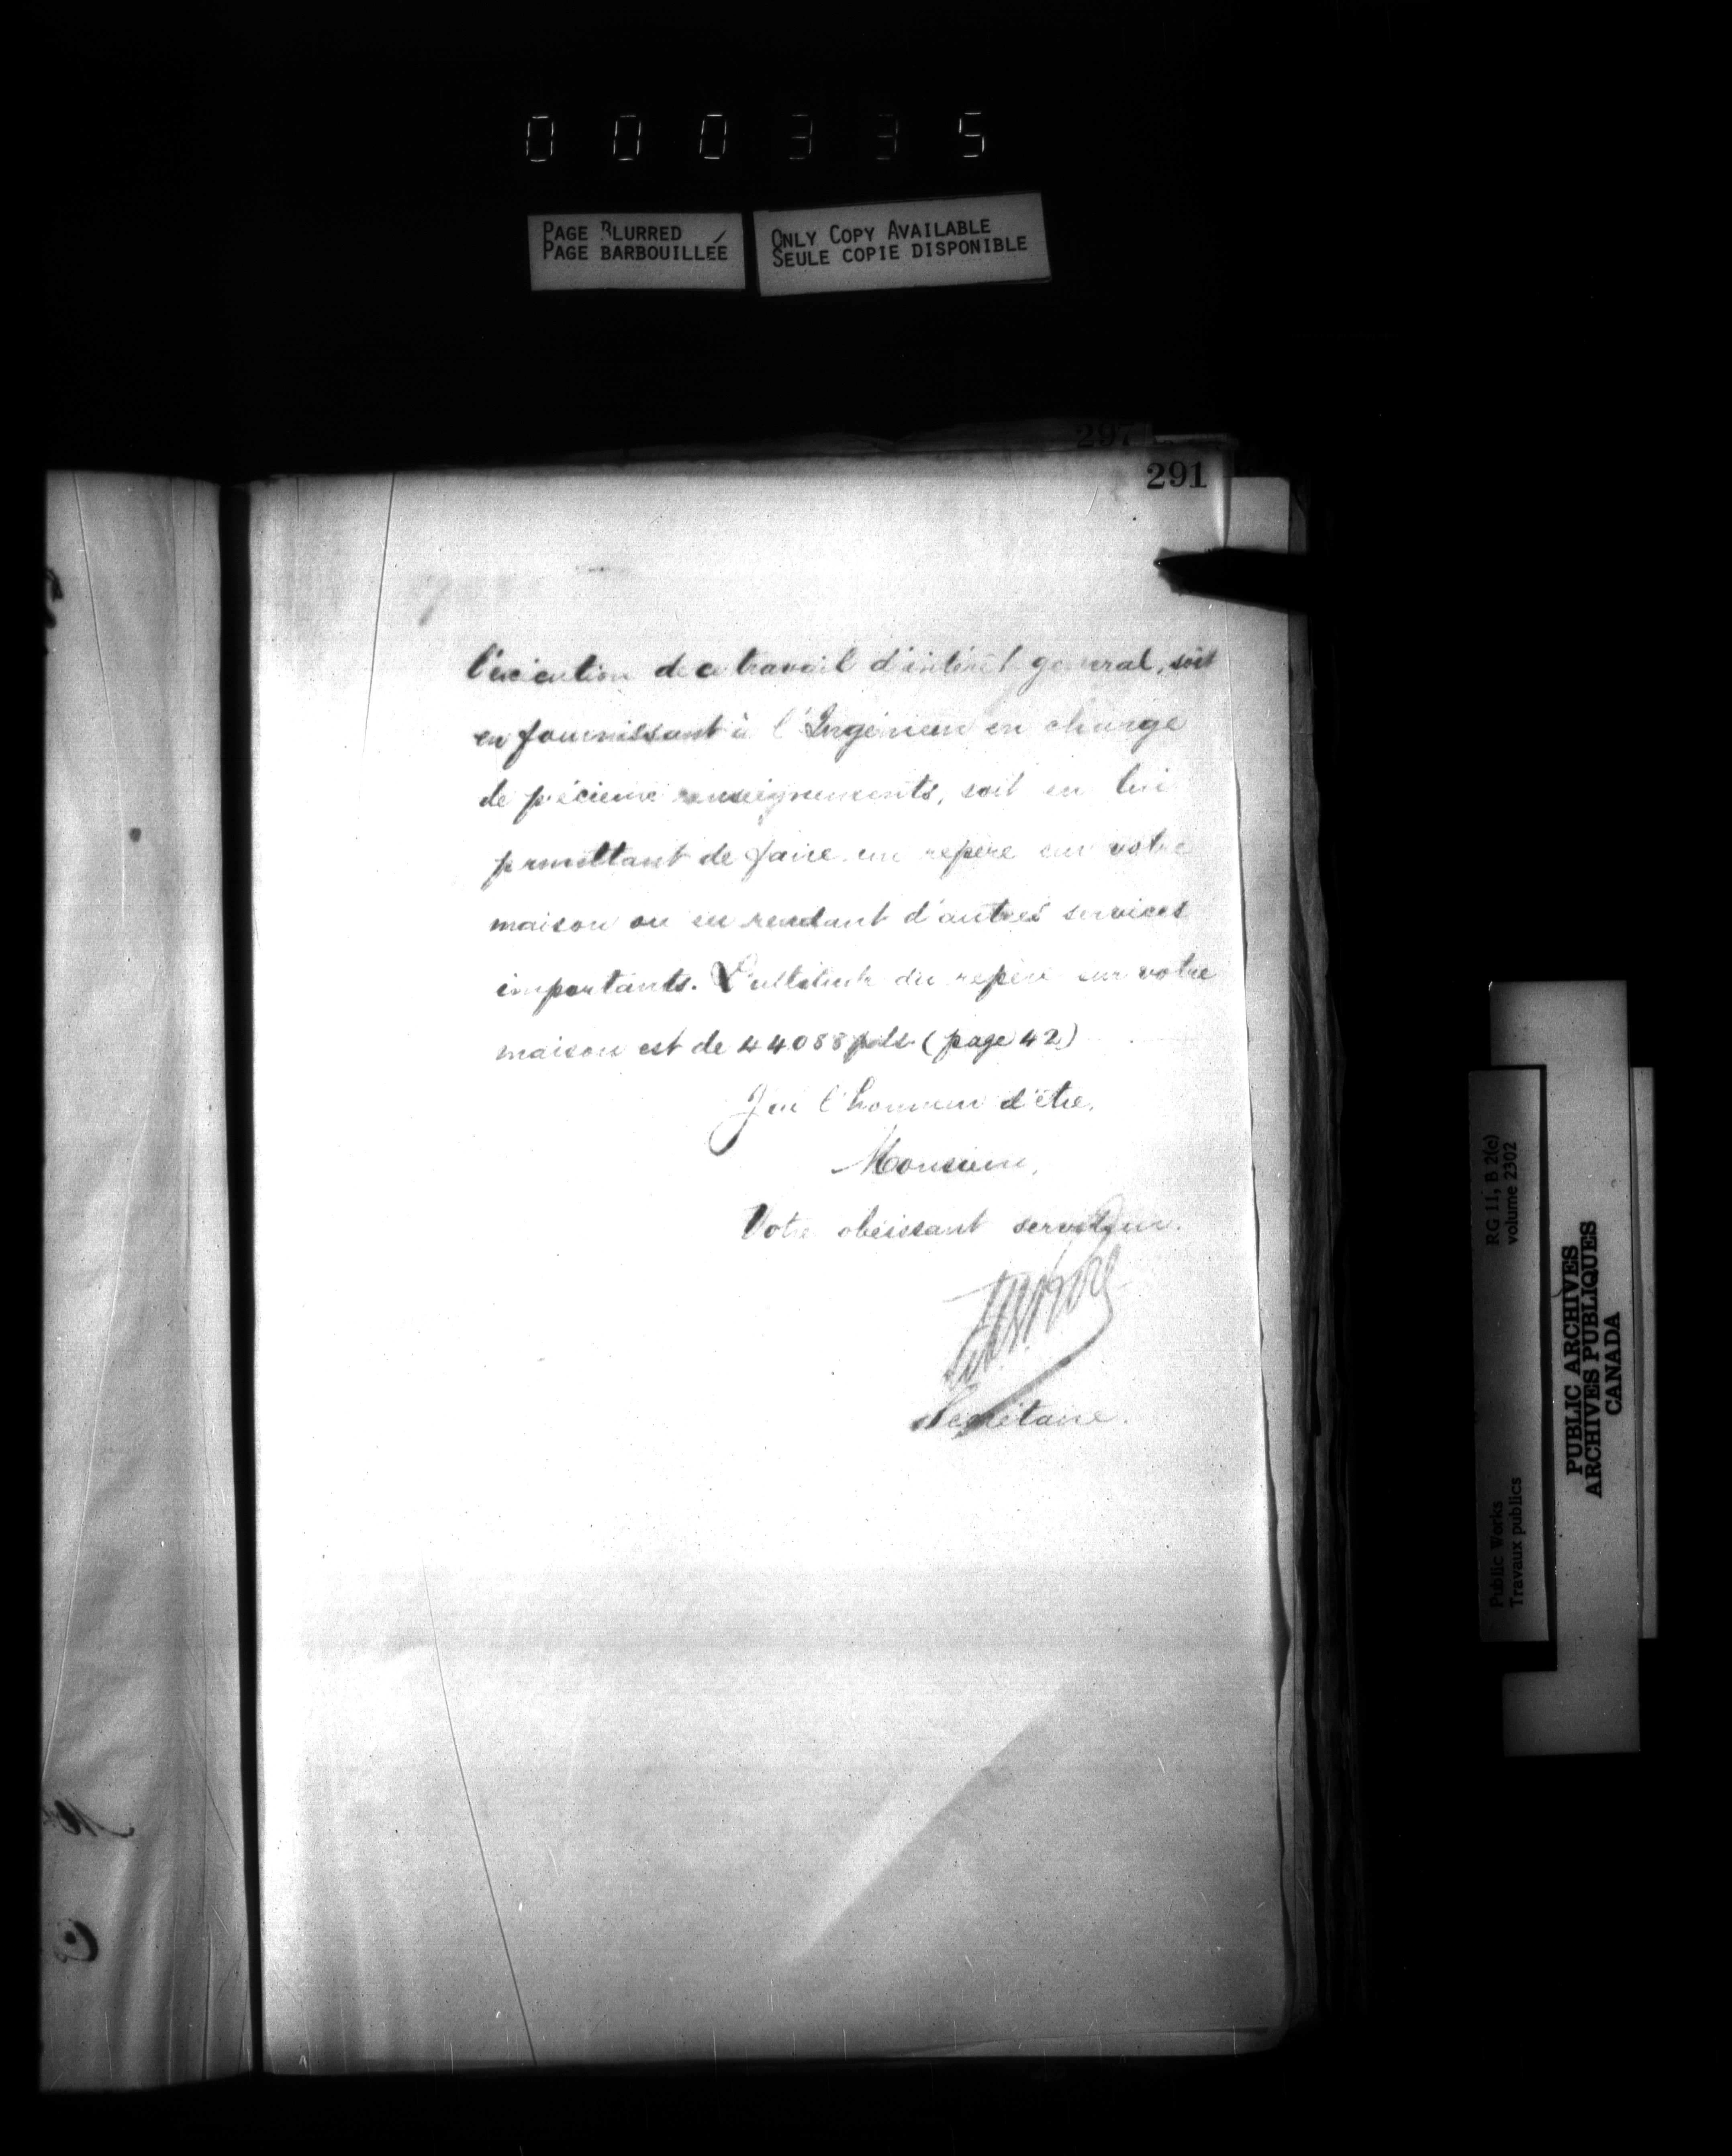 000335
PAGE BLURRED
PAGE BARBOUILLÉE
ONLY COPY AVAILABLE
SEULE COPIE DISPONIBLE
297
291
l'exécution de ce travail d'intérêt général, soit
en fournissant à l'Ingénieur en charge
de précieux renseignements, soit en lui
permettant de faire un repère sur votre
maison ou en rendant d'autres services
importants. L'altitude du repère sur votre
maison est de 44088 pds (page 42)
J'ai l'honneur d'être,
Monsieur,
Votre obéissant serviteur.
Secrétaire.
RG 11, B 2(c)
volume 2302
Public Works
Travaux publics
PUBLIC ARCHIVES
ARCHIVES PUBLIQUES
CANADA